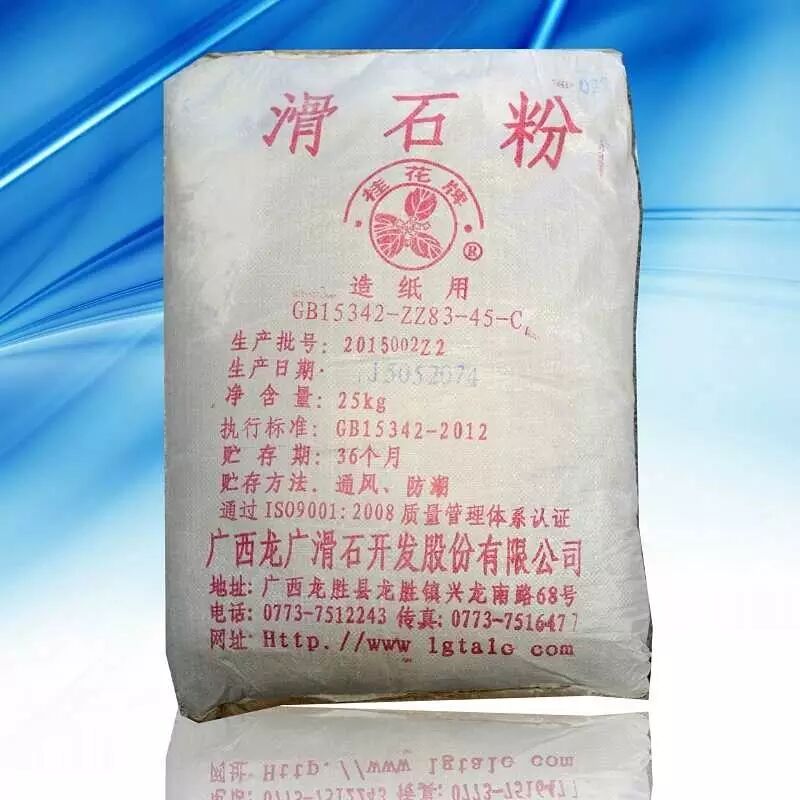 滑石粉
桂花牌
®
造纸用
GB15342-ZZ83-45-C
生产批号：2015002Z2
生产日期：15052074
净含量：25kg
执行标准：GB15342-2012
贮存期：36个月
贮存方法：通风、防潮
通过ISO9001:2008质量管理体系认证
广西龙广滑石开发股份有限公司
地址：广西龙胜县龙胜镇兴龙南路68号
电话：0773-7512243 传真：0773-7516477
网址：Http://www lgtalc com